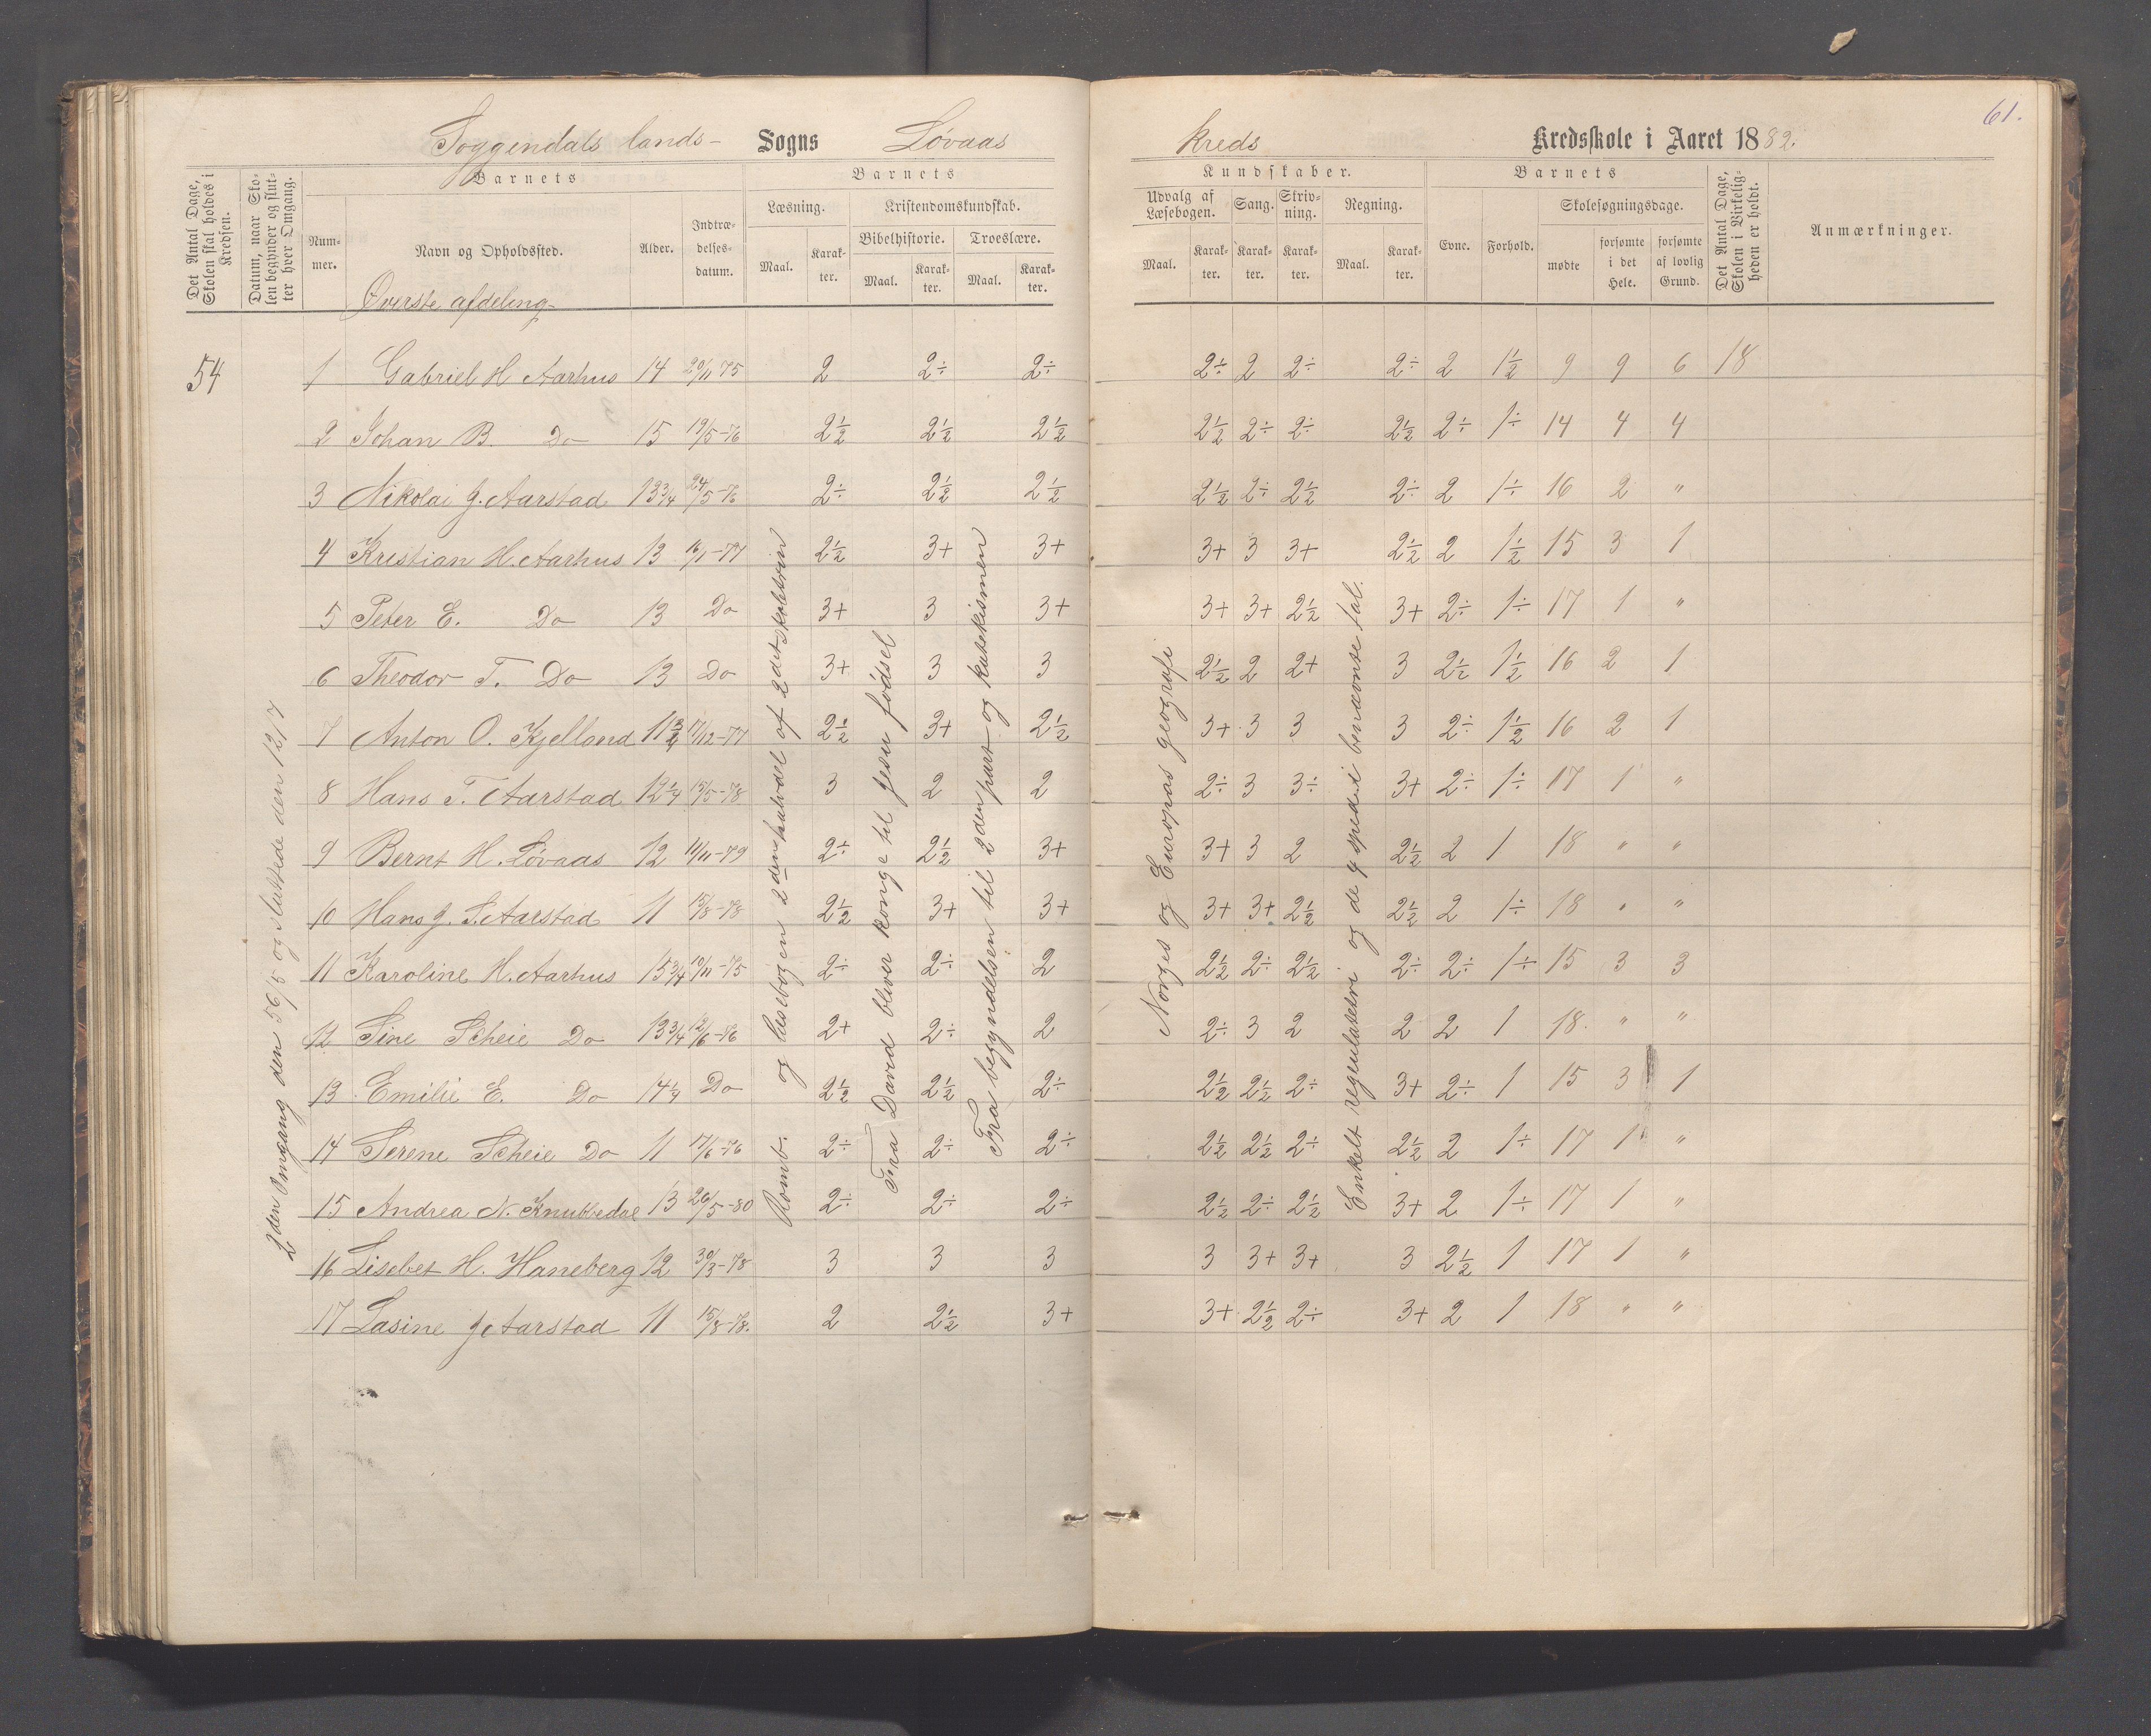 61.
Soggendals lands- Sogns Løvaas kreds Kredsskole i Aaret 1882.
Det Antal Dage, Skolen skal holdes i Kredsen.
Datum, naar Skolen begynder og slutter hver Omgang.
Barnets
Nummer.
Navn og Opholdssted.
Alder.
Indtrædelsesdatum.
Barnets
Læsning.
Maal.
Karakter.
Kristendomskundskab.
Bibelhistorie.
Maal.
Karakter.
Troeslære.
Maal.
Karakter.
Kundskaber.
Udvalg af Læsebogen.
Maal.
Karakter.
Sang.
Karakter.
Skrivning.
Karakter.
Regning.
Maal.
Karakter.
Barnets
Evne.
Forhold.
Skolesøgningsdage.
mødte
forsømte i det Hele.
forsømte af lovlig Grund.
Det Antal Dage, Skolen i Virkeligheden er holdt.
Anmærkninger.
Øverste afdeling
54 1 Gabriel H Aarhus 14 20/11 75 2 2÷ 2÷ 2÷ 2 2÷ 2÷ 2 1½ 9 9 6 18
2 Johan B. Do 15 19/5-76 2½ 2½ 2½ 2½ 2÷ 2÷ 2½ 2÷ 1÷ 14 4 4
3 Nikolai J. Aarstad 13¾ 24/5-76 2÷ 2½ 2½ 2½ 2÷ 2½ 2÷ 2 1÷ 16 2 "
4 Kristian H. Aarhus 13 16/1-77 2½ 3+ 3+ 3+ 3 3+ 2½ 2 1½ 15 3 1
5 Peter E. Do 13 Do 3+ 3 3+ 3+ 3+ 2½ 3+ 2÷ 1÷ 17 1 "
6 Theodor T. Do 13 Do 3+ 3 3 2½ 2 2+ 3 2½ 1½ 16 2 1
7 Anton O. Kjelland 11¾ 17/12-77 2½ 3+ 2½ 3+ 3 3 3 2÷ 1½ 16 2 1
8 Hans T. Aarstad 12¼ 15/5-78 3 2 2 2÷ 3 3÷ 3+ 2÷ 1÷ 17 1 "
9 Bernt H. Løvaas 12 11/11-79 2÷ 2½ 3+ 3+ 3 2 2½ 2 1 18 " "
10 Hans J. S. Aarstad 11 15/8-78 2½ 3+ 3+ 3+ 3+ 2½ 2½ 2 1÷ 18 " "
11 Karoline H. Aarhus 15¾ 10/11-75 2÷ 2÷ 2 2½ 2÷ 2½ 2÷ 2÷ 1÷ 15 3 3
12 Sine Scheie Do 13¾ 12/6-76 2+ 2÷ 2 2÷ 3 2 2 2 1 18. " "
13 Emilie E. Do 14¼ Do 2½ 2½ 2÷ 2½ 2½ 2÷ 3+ 2÷ 1 15 3 1
14 Serene Scheie Do 11 17/6-76 2÷ 2÷ 2÷ 2½ 2½ 2÷ 2½ 2 1÷ 17 1 "
15 Andrea N. Knubbedal 13 26/5-80 2÷ 2÷ 2÷ 2½ 2÷ 2½ 3+ 2 1÷ 17 1 "
16 Lisebet H. Haneberg 12 30/3-78 3 3 3 3 3+ 3+ 3 2½ 1 17 1 "
17 Lasine J Aarstad 11 15/8-78. 2 2½ 3+ 3+ 2½ 2÷ 3+ 2 1 18 " "
2den Omgang den 5 og sluttede den 12/7
og læsebogen 2den halvdel af 2det skoletrin
Fra David bliver konge til Jesu fødsel
Fra begyndelsen til 2den part og katekismen
Norges og Europas geografi
Enkelt regulatetri og de 4 sped. i benævnte tal.